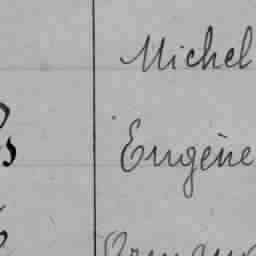 Michel
Eugène